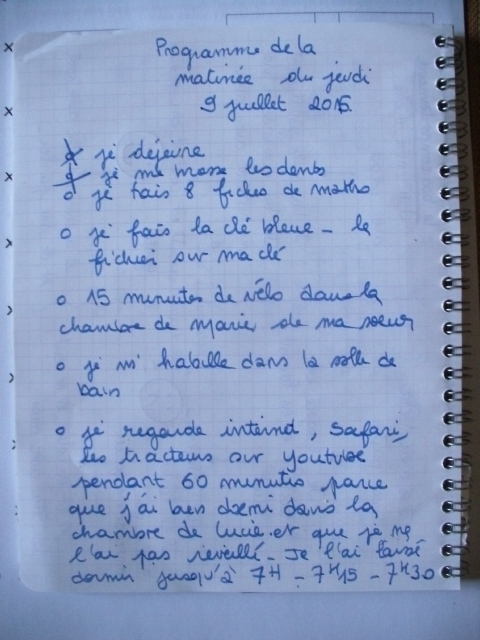 Programme de la
matinée du jeudi
9 juillet 2015
je déjeune
je me brosse les dents
o je fais 8 fiches de maths
o je fais la clé bleue - le
fichier sur ma clé
o 15 minutes de vélo dans la
chambre de Marie, de ma soeur
o je m'habille dans la salle de
bain
o je regarde internet, Safari,
les tracteurs sur youtube
pendant 60 minutes parce
que j'ai bien dormi dans la
chambre de Lucie et que je ne
l'ai pas réveillé - Je l'ai laissé
dormir jusqu'à 7H - 7H15 - 7H30